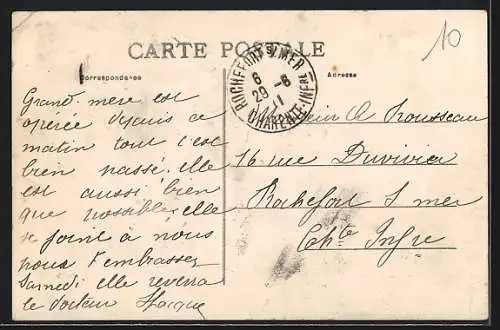 10
CARTE POSTALE
Correspondance
Adresse
ROCHEFORT S/ MER
6
29 -8
11
CHARENTE-INFRE
Grand-mère est
opérée depuis ce
matin tout s'est
bien passé. elle
est aussi bien
que possible, elle
se joint à nous
pour t'embrasser
Samedi elle reverra
le docteur
A Rousseau
16 rue Duvivier
Rochefort s mer
Chte Infre